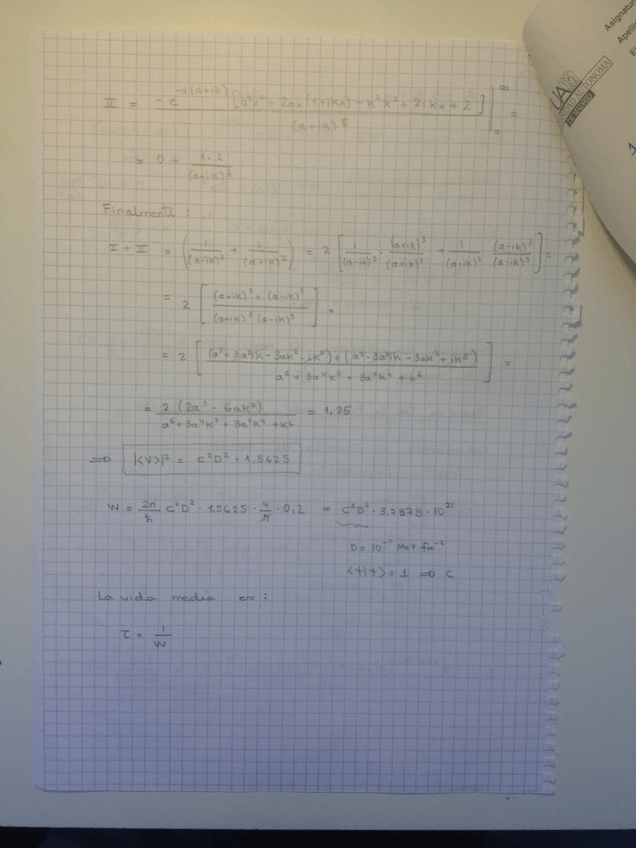 II = -e^{-x(a+ik)} [a²x² + 2ax(1+ikx) - k²x² + 2ikx + 2] / (a+ik)³ |₀^∞ =
= 0 + 1·2 / (a+ik)³
Finalmente,
I + II = ( 1/(a-ik)³ + 1/(a+ik)³ ) = 2 [ 1/(a-ik)³ · (a+ik)³/(a+ik)³ + 1/(a+ik)³ · (a-ik)³/(a-ik)³ ] =
= 2 [ ((a+ik)³ + (a-ik)³) / ((a+ik)³ (a-ik)³) ] =
= 2 [ ((a³ + 3a²ik - 3ak² - ik³) + (a³ - 3a²ik - 3ak² + ik³)) / (a⁶ + 3a⁴k² + 3a²k⁴ + k⁶) ] =
= 2 (2a³ - 6ak²) / (a⁶ + 3a⁴k² + 3a²k⁴ + k⁶) = 1,25
⇒ |⟨V⟩|² = c²D² · 1,5625
W = 2π/ħ c²D² · 1,5625 · 4/π · 0,2 = c²D² · 3,7878 · 10²¹
D = 10⁻¹¹ MeV fm⁻²
⟨+|+⟩ = 1 ⇒ c
La vida media es:
τ = 1/W
Asignatur
Apelli
UA
DE MADRID